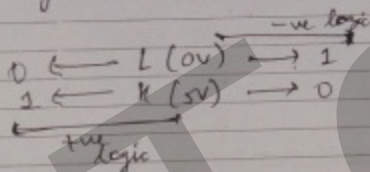 -ve logic
0 ← L (0V) → 1
1 ← H (5V) → 0
+ve logic